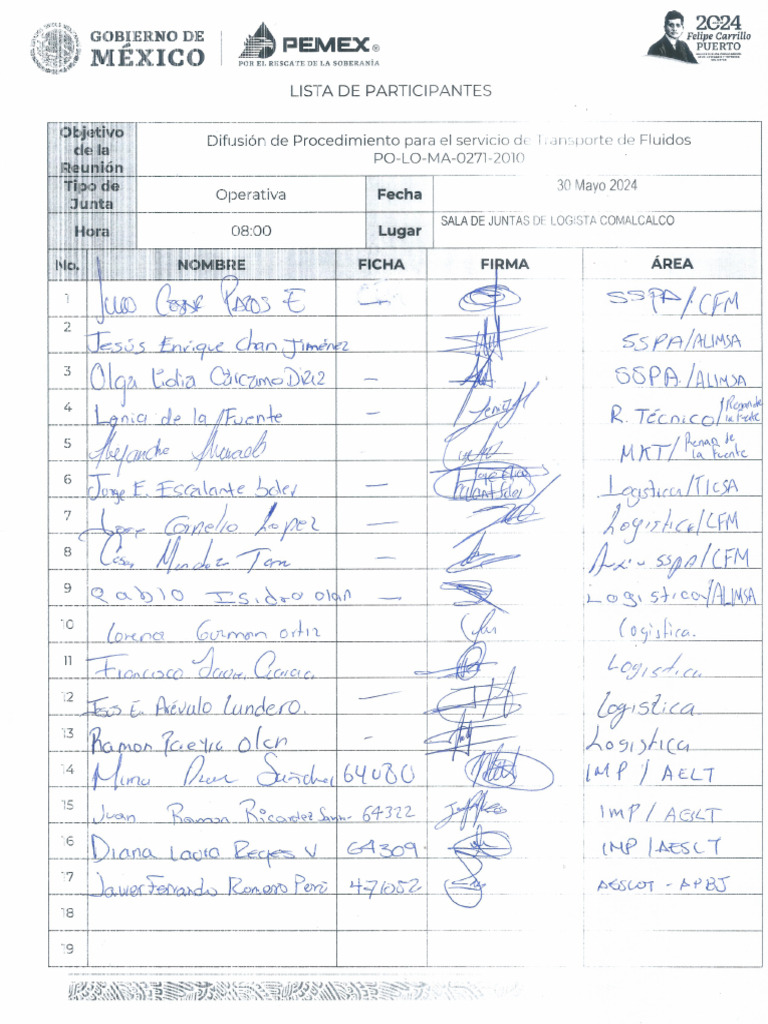 GOBIERNO DE
MÉXICO
PEMEX®
POR EL RESCATE DE LA SOBERANÍA
2024
Felipe Carrillo
PUERTO
LISTA DE PARTICIPANTES
Objetivo de la Reunión Difusión de Procedimiento para el servicio de Transporte de Fluidos
PO-LO-MA-0271-2010
Tipo de Junta Operativa Fecha 30 Mayo 2024
Hora 08:00 Lugar SALA DE JUNTAS DE LOGISTA COMALCALCO
No. NOMBRE FICHA FIRMA ÁREA
1 Julio Cesar Pazos E — SSPA/CFM
2 Jesús Enrique Chan Jiménez SSPA/ALIMSA
3 Olga Lidia Cárcamo Díaz — SSPA/ALIMSA
4 Lenia de la Fuente — R. Técnico/Renan de la Fuente
5 Alejandro MKT/Renan de la Fuente
6 Jorge E. Escalante Soler — Logística/TICSA
7 Jorge Cornelio Lopez — Logistica/CFM
8 Cesar Mendez — Aux. SSPA/CFM
9 Pablo Isidro Olan — Logistica/ALIMSA
10 Lorena Guzman Ortiz Logistica.
11 Francisco Garcia Logistica
12 Jesús E. Arévalo Lundero. — Logistica
13 Ramon Pereyra Olan - Logistica
14 Sánchez 64080 IMP / AELT
15 Juan Ramon Ricardez 64322 IMP / AESLT
16 Diana Laura Reyes V 64309. IMP / AESLT
17 Javier Fernando Romero Perú 471052 AESLOT - APBJ
18
19